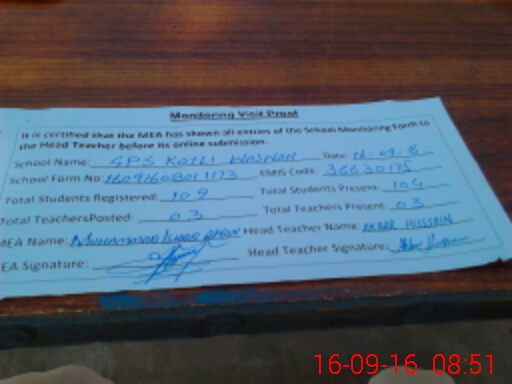 Monitoring Visit Proof
It is certified that the MEA has shown all entries of the School Monitoring Form to
the Head Teacher before its online submission.
School Name: GPS KOTLI Date: 16-09-
School Form No: EMIS Code: 36630175
Total Students Registered: 109 Total Students Present: 104
Total Teachers Posted: 03 Total Teachers Present: 03
MEA Name: Muhammad Head Teacher Name: AKBAR HUSSAIN
MEA Signature: Head Teacher Signature:
16-09-16 08:51